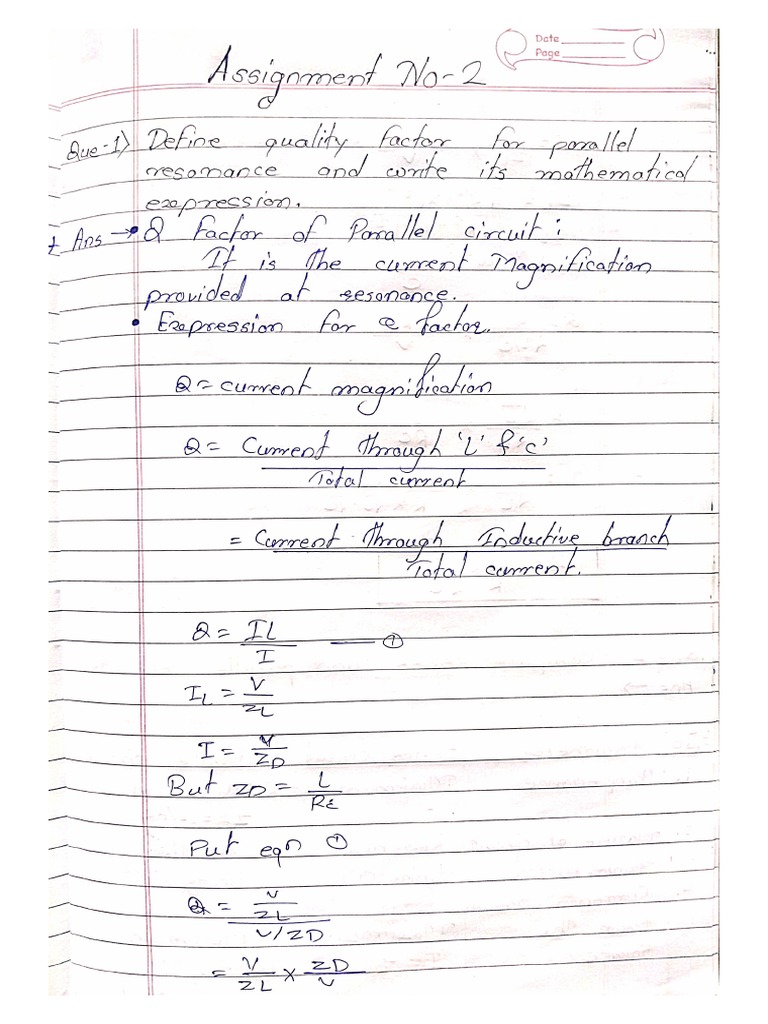 Date
Page
Assignment No-2
Que-1) Define quality factor for parallel
resonance and write its mathematical
expression.
Ans → • Q factor of Parallel circuit :
It is the current Magnification
provided at resonance.
• Expression for Q factor.
Q = current magnification
Q = Current through 'L' & 'C'
Total current
= Current through Inductive branch
Total current.
Q = IL
I — ①
IL = V
ZL
I = V
ZD
But ZD = L
RC
Put eqn ①
Q = V
ZL
V/ZD
= V/ZL × ZD/V